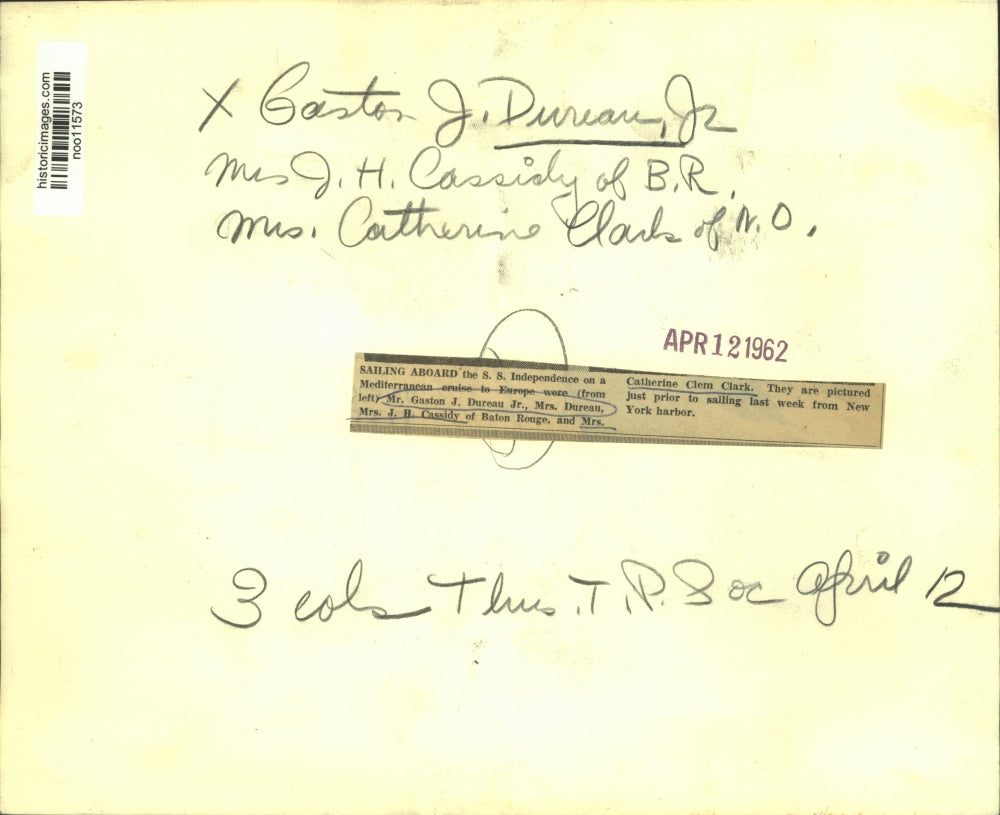 historicimages.com
noo11573
X Gaston J. Dureau, Jr
Mrs J. H. Cassidy of B.R.
Mrs. Catherine Clark of N.O.
APR 12 1962
SAILING ABOARD the S. S. Independence on a
Mediterranean cruise to Europe were (from
left) Mr. Gaston J. Dureau Jr., Mrs. Dureau,
Mrs. J. H. Cassidy of Baton Rouge, and Mrs.
Catherine Clem Clark. They are pictured
just prior to sailing last week from New
York harbor.
3 cols Thus. T.P. Soc April 12